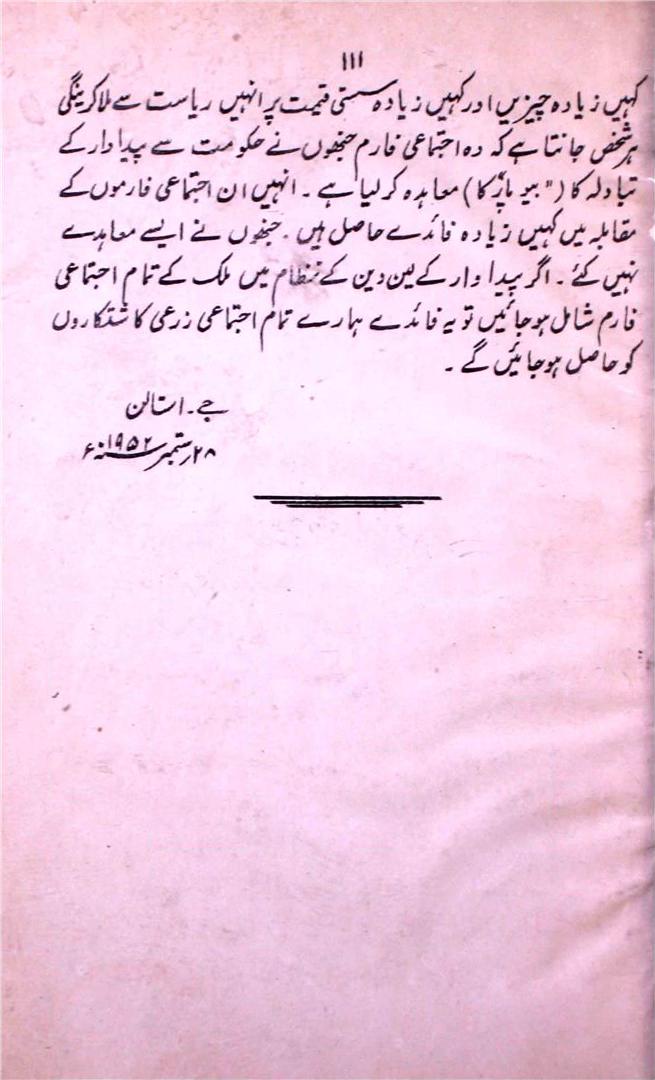 ۱۱۱
کہیں زیادہ چیزیں اور کہیں زیادہ سستی قیمت پر انہیں ریاست سے ملا کرینگی
ہر شخص جانتا ہے کہ وہ اجتماعی فارم جنھوں نے حکومت سے پیداوار کے
تبادلہ کا (" بیوپار کا) معاہدہ کر لیا ہے ۔ انہیں ان اجتماعی فارموں کے
مقابلہ میں کہیں زیادہ فائدے حاصل ہیں ۔ جنھوں نے ایسے معاہدے
نہیں کئے ۔ اگر پیداوار کے لین دین کے نظام میں ملک کے تمام اجتماعی
فارم شامل ہو جائیں تو یہ فائدے ہمارے تمام اجتماعی زرعی کاشتکاروں
کو حاصل ہو جائیں گے ۔
جے ۔ استالن
۲۸ ستمبر ۱۹۵۲ء